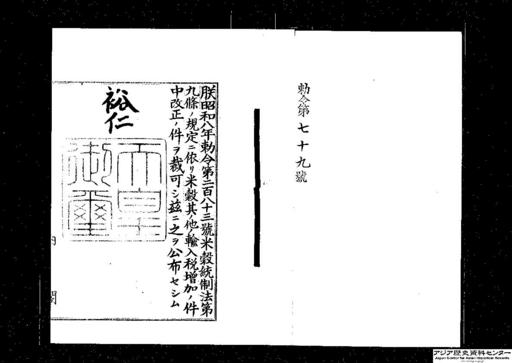 勅令第七十九號
朕昭和八年勅令第二百八十三號米穀統制法第
九條ノ規定ニ依リ米穀其ノ他ノ輸入税増加ノ件
中改正ノ件ヲ裁可シ茲ニ之ヲ公布セシム
裕仁
天皇
御璽
内閣
アジア歴史資料センター
Japan Center for Asian Historical Records